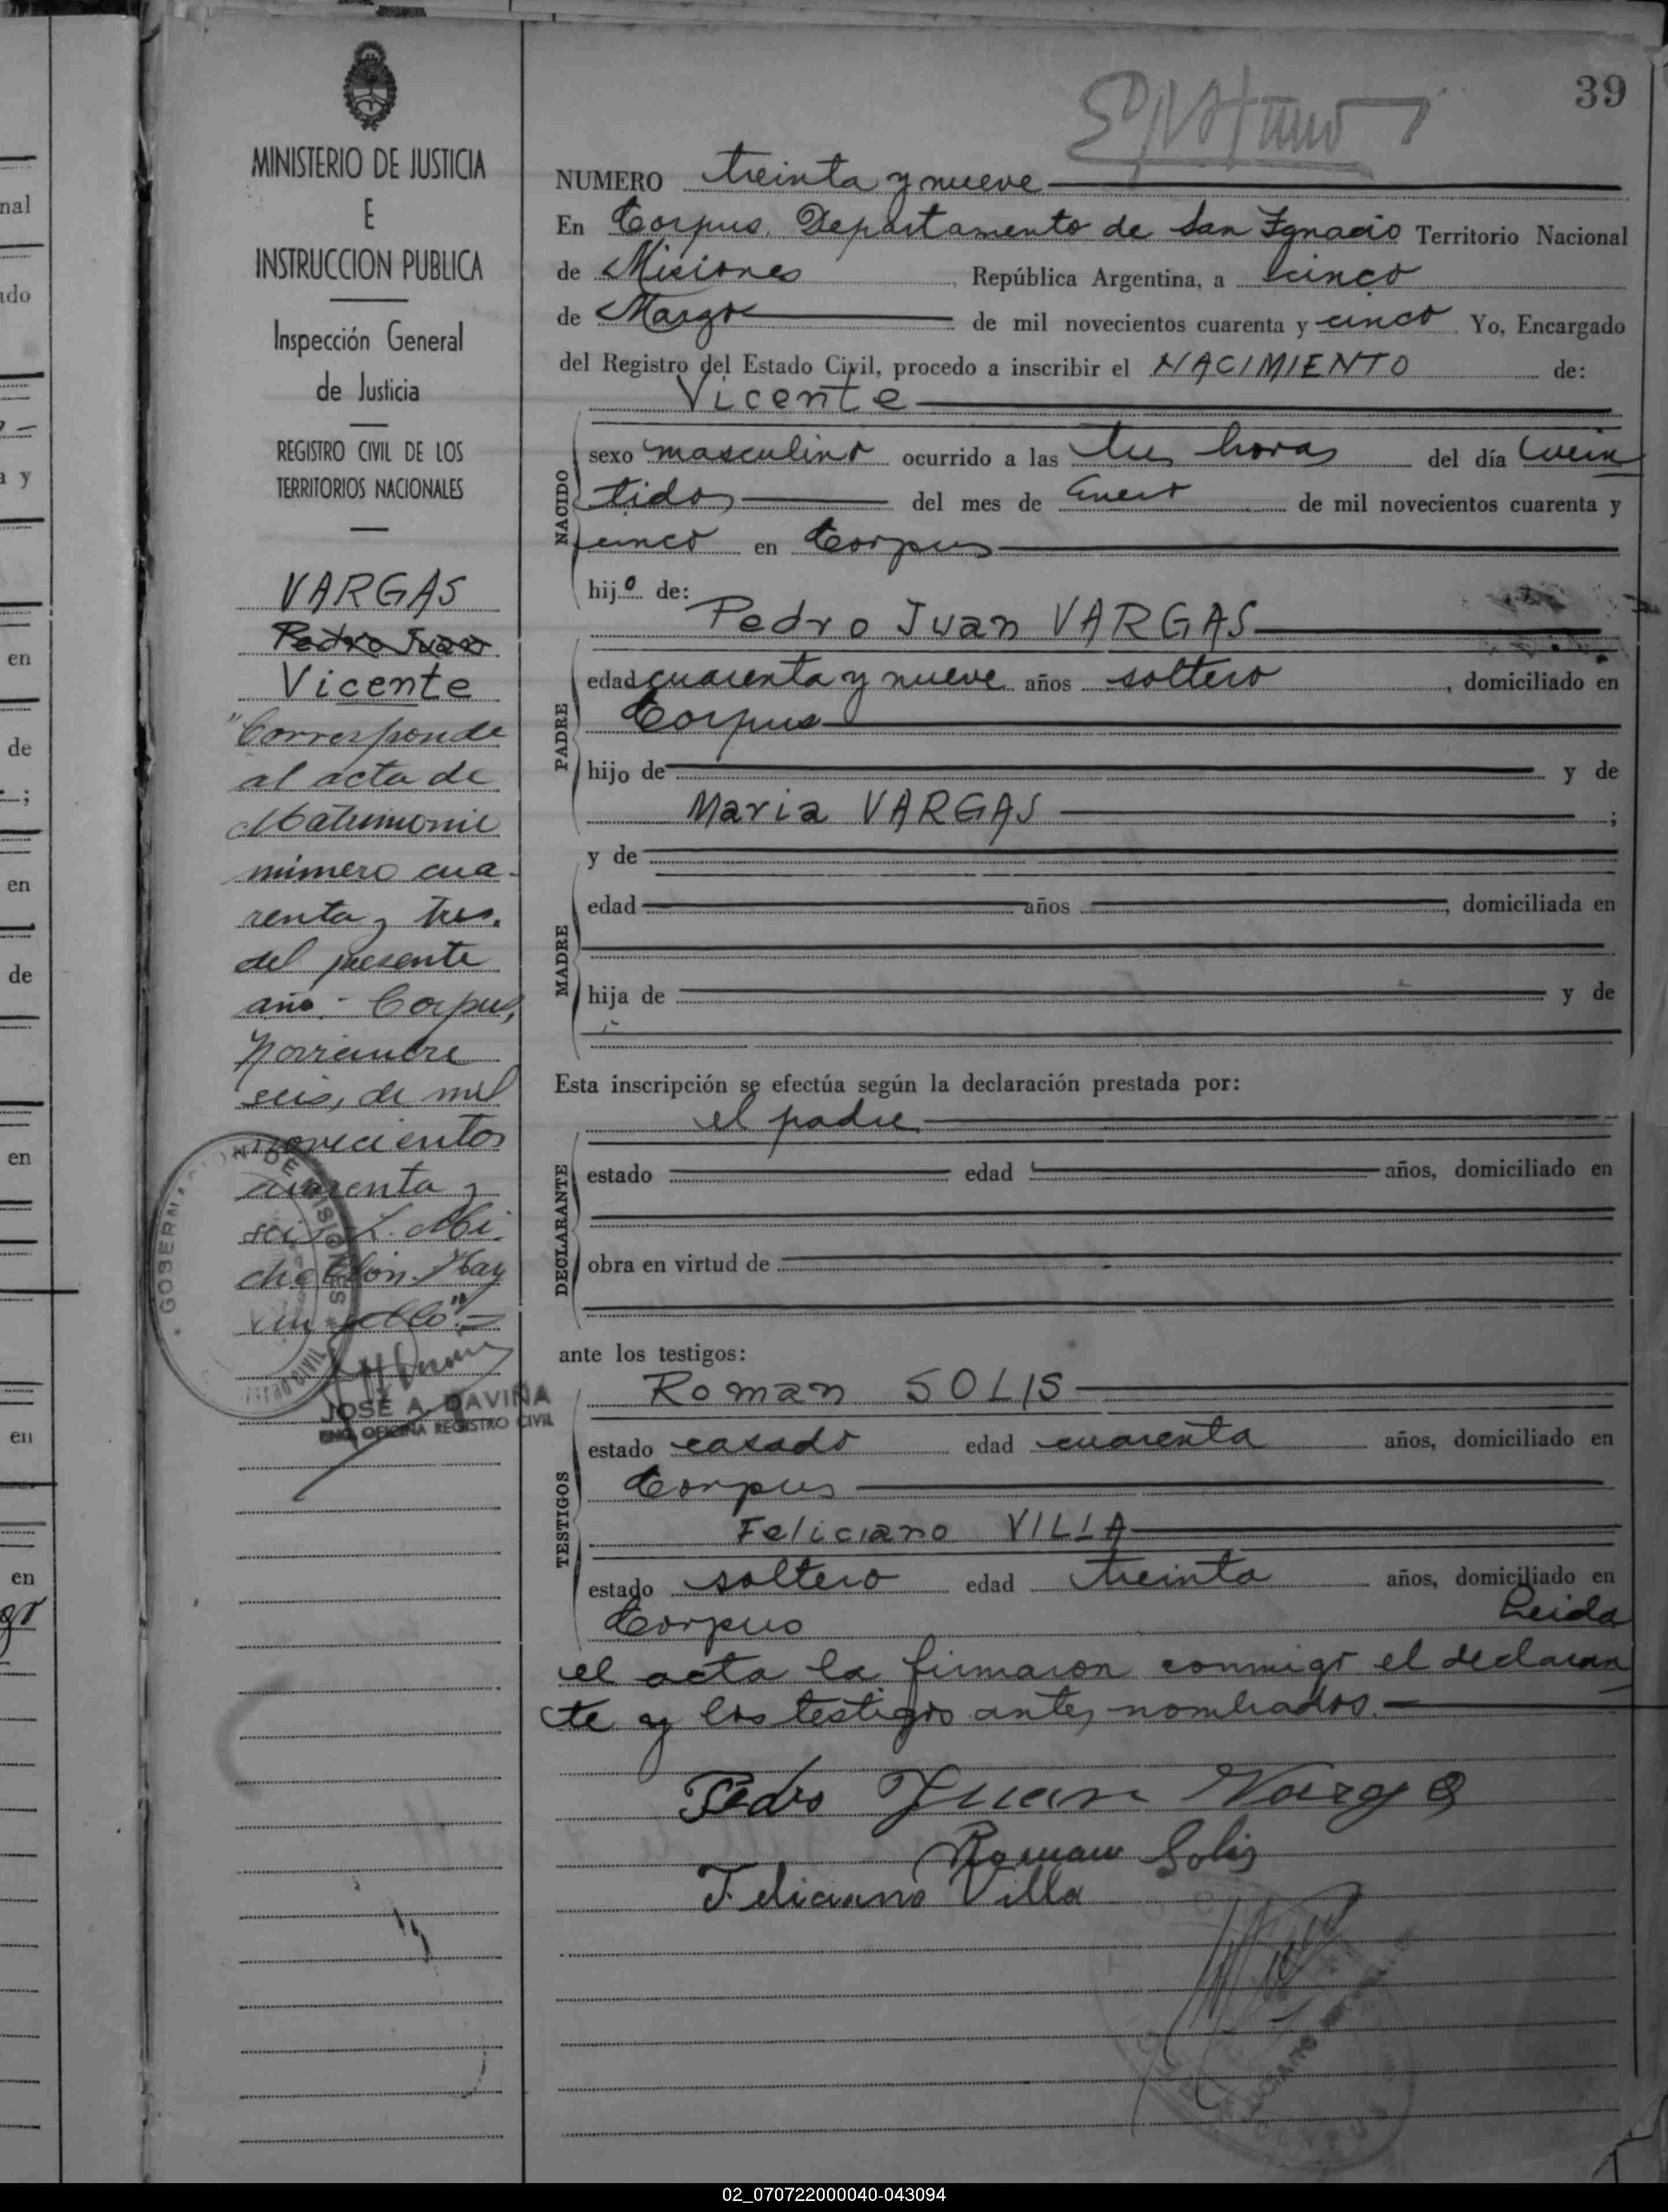 39
MINISTERIO DE JUSTICIA
E
INSTRUCCION PUBLICA
Inspección General
de Justicia
REGISTRO CIVIL DE LOS
TERRITORIOS NACIONALES
VARGAS
Pedro Juan
Vicente
"Corresponde
al acta de
Matrimonio
número cua-
renta y tres.
del presente
año. - Corpus,
Noviembre
seis, de mil
novecientos
cuarenta y
seis L. Mi-
chellón. Hay
un sello".-
JOSE A. DAVIÑA
ENC. OFICINA REGISTRO CIVIL
NUMERO treinta y nueve
En Corpus, Departamento de San Ignacio Territorio Nacional
de Misiones, República Argentina, a cinco
de Marzo de mil novecientos cuarenta y cinco Yo, Encargado
del Registro del Estado Civil, procedo a inscribir el NACIMIENTO de:
Vicente
NACIDO
sexo masculino ocurrido a las tres horas del día vein
tidos del mes de Enero de mil novecientos cuarenta y
cinco en Corpus
hijo de:
Pedro Juan VARGAS
PADRE
edad cuarenta y nueve años soltero, domiciliado en
Corpus
hijo de y de
Maria VARGAS ;
y de
MADRE
edad años , domiciliada en
hija de y de
Esta inscripción se efectúa según la declaración prestada por:
el padre
DECLARANTE
estado edad años, domiciliado en
obra en virtud de
ante los testigos:
Roman SOLIS
TESTIGOS
estado casado edad cuarenta años, domiciliado en
Corpus
Feliciano VILLA
estado soltero edad treinta años, domiciliado en
Corpus Leida
el acta la firmaron conmigo el declaran
te y los testigos antes nombrados.-
Pedro Juan Vargas
Roman Solis
Feliciano Villa
02_070722000040-043094